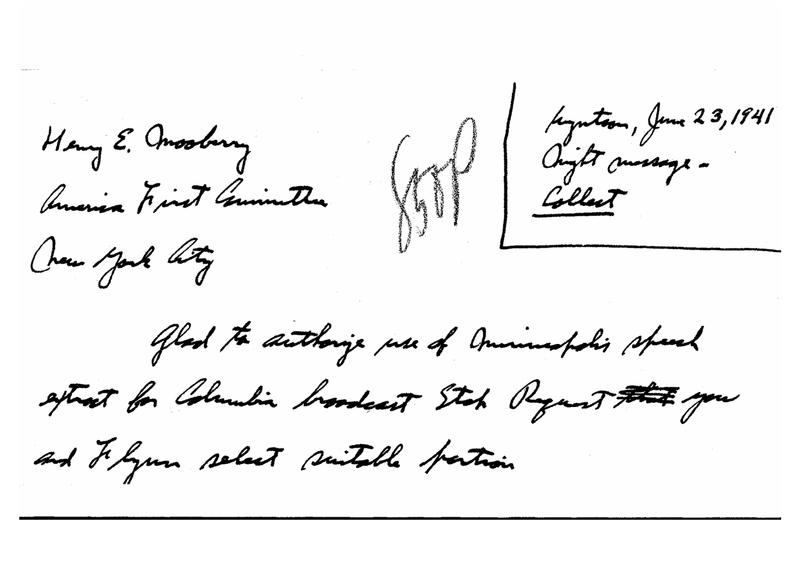 Henry E. Mooberry
America First Committee
New York City
June 23, 1941
Night message -
Collect
Glad to authorize use of Minneapolis speech
extract for Columbia broadcast Stop Request you
and Flynn select suitable portion